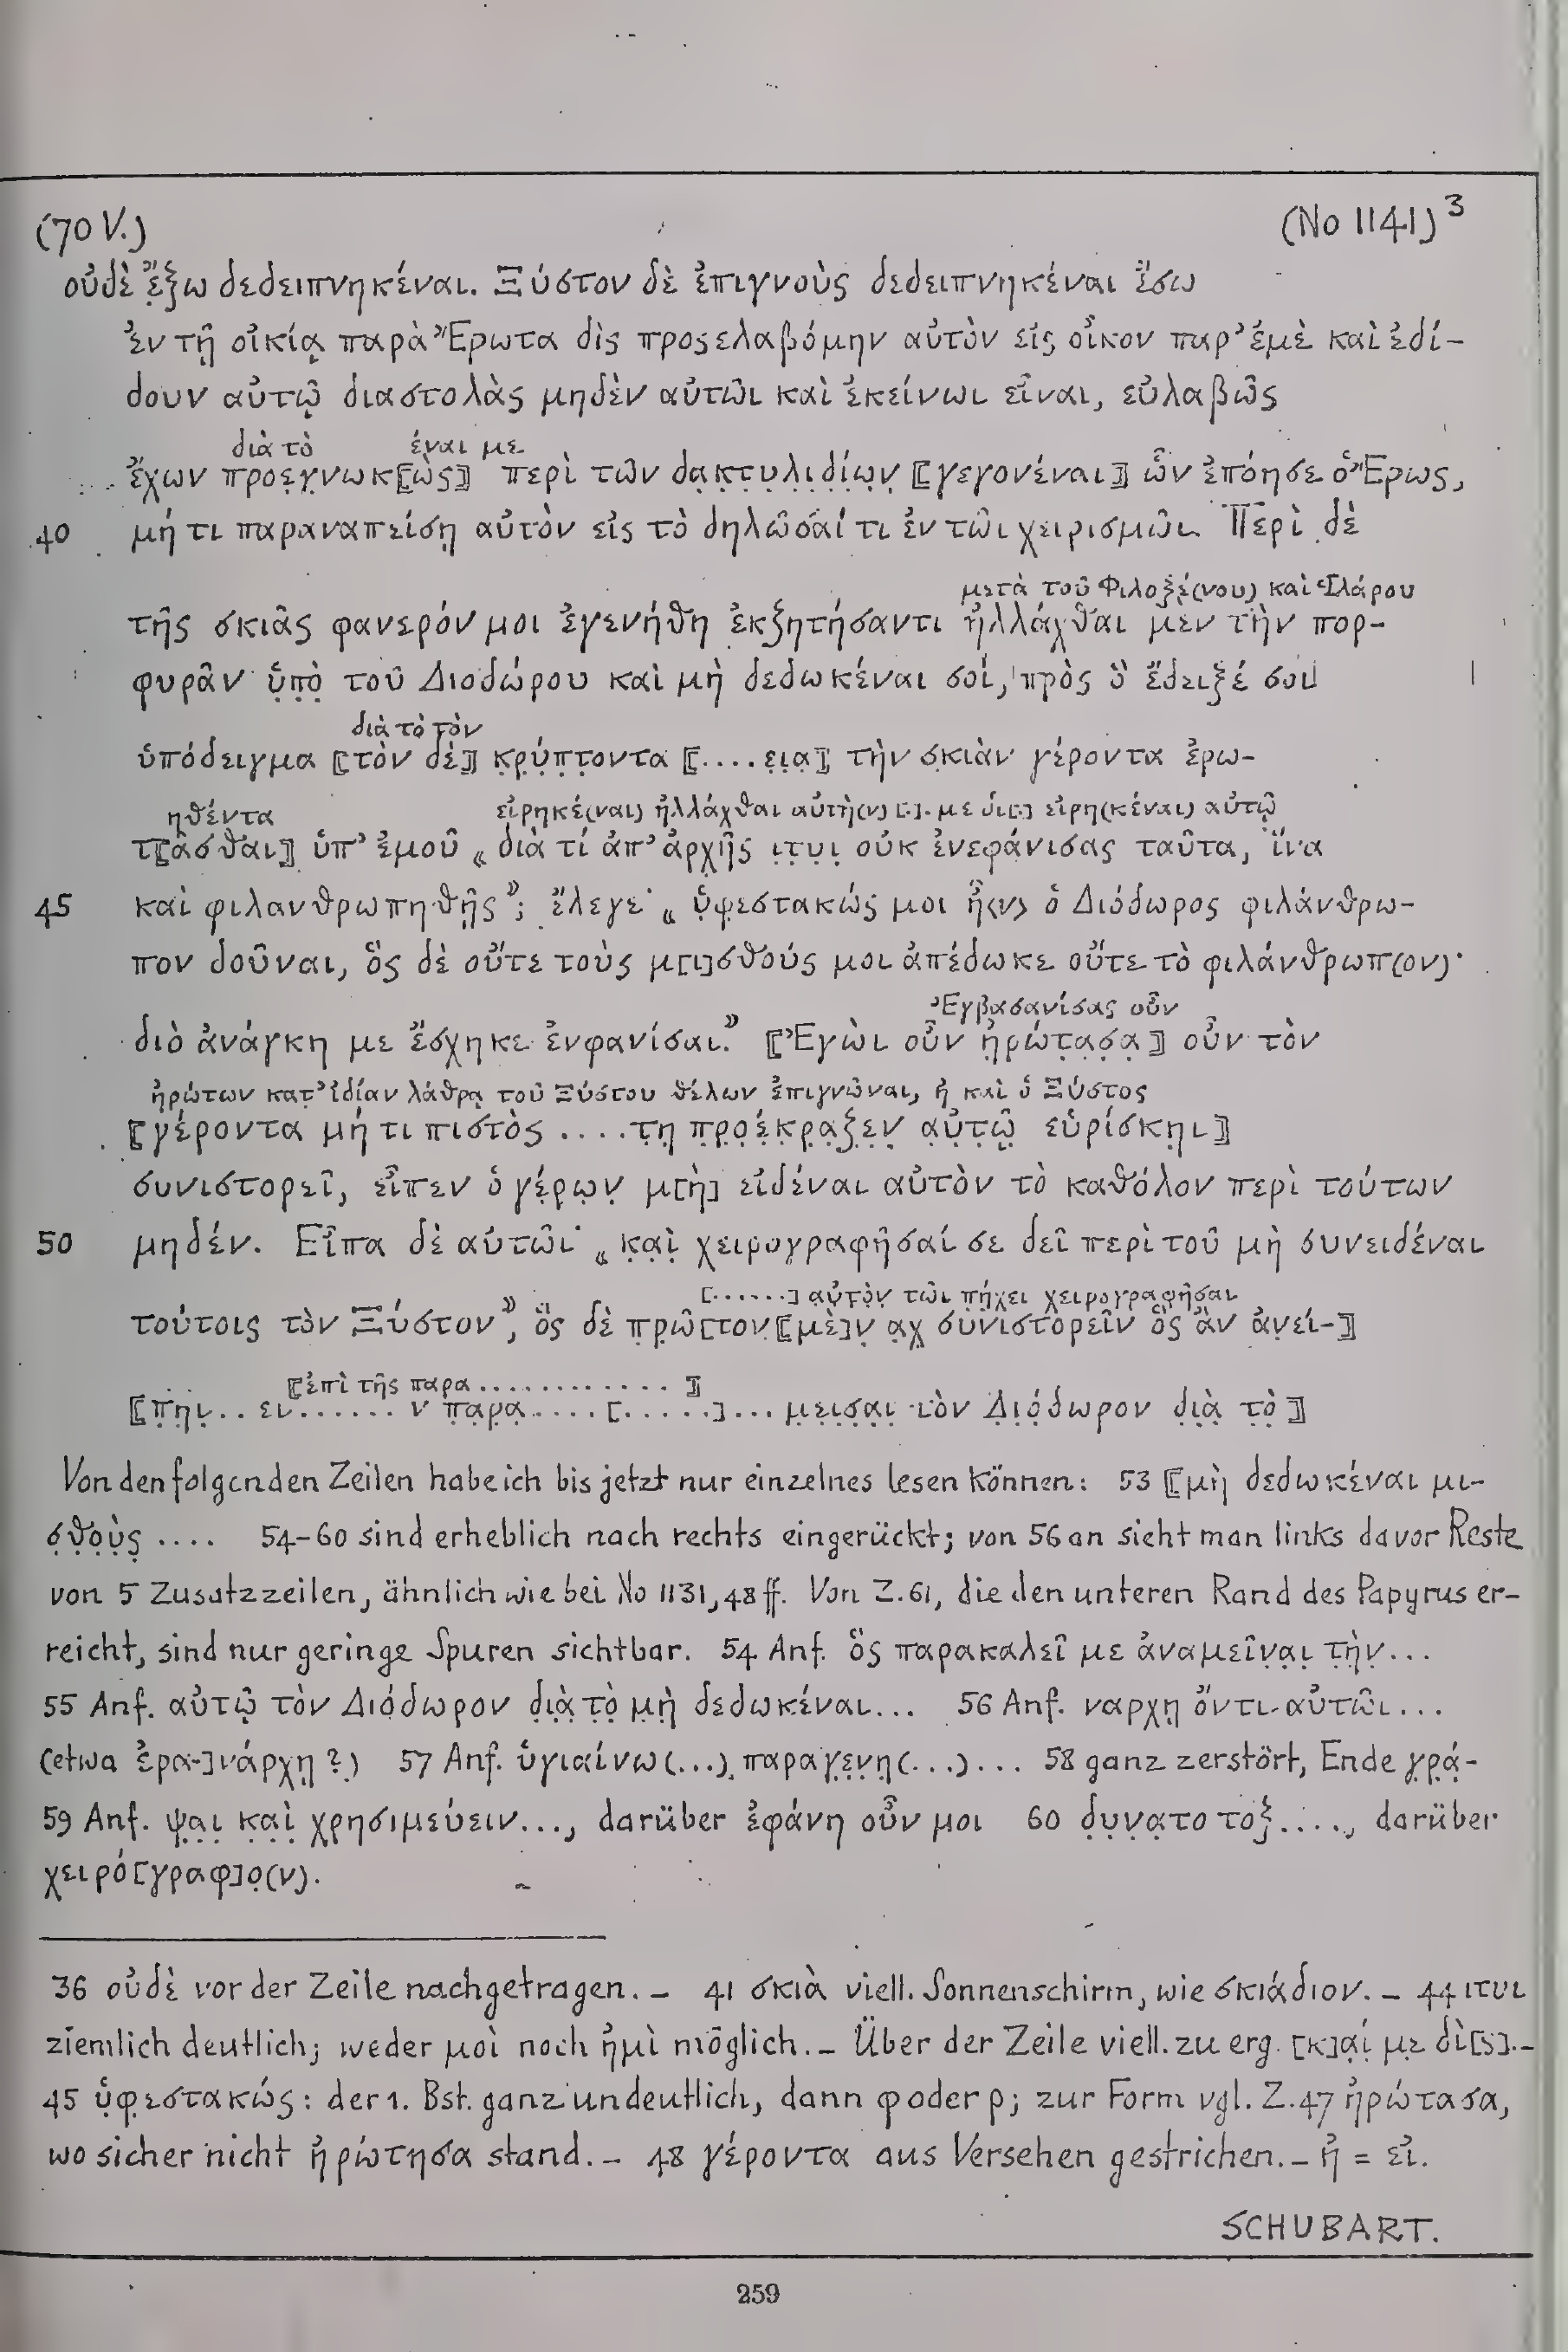 (70 V.) (No 1141)³
οὐδὲ ἔ̣ξω δεδειπνηκέναι. Ξύστον δὲ ἐπιγνοὺς δεδειπνηκέναι ἔσω
ἐν τῇ οἰκίᾳ παρὰ Ἔρωτα δὶς προςελαβόμην αὐτὸν εἰς οἶκον παρ' ἐμὲ καὶ ἐδί-
δουν αὐτῷ διαστολὰς μηδὲν αὐτῶι καὶ ἐκείνωι εἶναι, εὐλαβῶς
διὰ τὸ έναι με
ἔχων προε̣γ̣νωκ⟦ὼς⟧ περὶ τῶν δα̣κ̣τ̣υ̣λ̣ι̣δ̣ίω̣ν̣ ⟦γεγονέναι⟧ ὧν ἐπόησε ὁ Ἔρως,
40 μή τι παραναπείσῃ αὐτὸν εἰς τὸ δηλῶσαί τι ἐν τῶι χειρισμῶι. Περὶ δὲ
μετὰ τοῦ Φιλοξέ̣(νου) καὶ Ἱλάρου
τῆς σκιᾶς φανερόν μοι ἐγενήθη ἐκζητήσαντι ἠλλάχθαι μὲν τὴν πορ-
φυρᾶν ὑ̣π̣ὸ̣ τοῦ Διοδώρου καὶ μὴ δεδωκέναι σοί, πρὸς ὃ ἔδειξέ σοι
διὰ τὸ τὸν
ὑπόδειγμα ⟦τὸν δὲ⟧ κ̣ρ̣ύ̣π̣τ̣οντα ⟦....ε̣ι̣α̣⟧ τὴν σ̣κιὰν γέροντα ἐρω-
ηθέντα εἰρηκέ(ναι) ἠλλάχθαι αὐτὴ(ν) [.]. με δι[.] εἰρη(κέναι) αὐτῷ
τ⟦ᾶσθαι⟧ ὑπ' ἐμοῦ „διὰ τί ἀπ' ἀρχῆς ι̣τ̣υ̣ι̣ οὐκ ἐνεφάνισας ταῦτα, ἵνα
45 καὶ φιλανθρωπηθῇς”; ἔλεγε· „ὑ̣φ̣εστακώς μοι ἦ⟨ν⟩ ὁ Διόδωρος φιλάνθρω-
πον δοῦναι, ὃς δὲ οὔτε τοὺς μ[ι]σθούς μοι ἀπέδωκε οὔτε τὸ φιλάνθρωπ(ον)·
Ἐγβασανίσας οὖν
διὸ ἀνάγκη με ἔσχηκε ἐνφανίσαι.” ⟦Ἐγὼι οὖν ἠ̣ρ̣ώ̣τ̣α̣σ̣α̣⟧ οὖν τὸν
ἠρώτων κατ' ἰδίαν λάθρᾳ τοῦ Ξύστου θέλων ἐπιγνῶναι, ἠ καὶ ὁ Ξύστος
⟦γέροντα μή τι πιστὸς ....τ̣η̣ π̣ρ̣ο̣έ̣κ̣ρ̣α̣ξ̣ε̣ν̣ α̣ὐ̣τ̣ῷ̣ εὑρίσκηι⟧
συνιστορεῖ, εἶπεν ὁ γέ̣ρ̣ω̣ν̣ μ[ὴ] εἰδέναι αὐτὸν τὸ καθόλον περὶ τούτων
50 μηδέν. Εἶπα δὲ αὐτῶι· „κ̣α̣ὶ̣ χειρογραφῆσαί σε δεῖ περὶ τοῦ μὴ συνειδέναι
[......] α̣ὐ̣τ̣ὸ̣ν̣ τῶι πή̣χει χειρογραφῆσαι
τούτοις τὸν Ξύστον”, ὃς δὲ π̣ρ̣ῶ̣[τον⟦μὲ]ν α̣χ̣ συνιστορεῖν ὃς ἂν ἀν̣εί-⟧
⟦ἐπὶ τῆς παρα............⟧
⟦π̣η̣ν̣..εν......ν π̣α̣ρ̣α̣.....[.....]...μ̣ε̣ι̣σ̣α̣ι̣ τὸν Δ̣ι̣ό̣δωρον δ̣ι̣ὰ̣ τ̣ὸ̣⟧
Von den folgenden Zeilen habe ich bis jetzt nur einzelnes lesen können: 53 ⟦μὴ δεδωκέναι μι-
σ̣θ̣ο̣ὺ̣ς̣ .... 54-60 sind erheblich nach rechts eingerückt; von 56 an sieht man links davor Reste
von 5 Zusatzzeilen, ähnlich wie bei No 1131,48 ff. Von Z.61, die den unteren Rand des Papyrus er-
reicht, sind nur geringe Spuren sichtbar. 54 Anf. ὃς παρακαλεῖ με ἀναμεῖν̣α̣ι̣ τ̣ὴ̣ν̣...
55 Anf. αὐτῷ τὸν Διόδωρον δ̣ι̣ὰ̣ τ̣ὸ̣ μ̣ὴ̣ δεδωκέναι... 56 Anf. ναρχῃ ὄντι αὐτῶι...
(etwa ἐρα-]νάρχῃ?) 57 Anf. ὑγιαίνω(...) παραγ̣ε̣ν̣η̣(...)... 58 ganz zerstört, Ende γ̣ρ̣ά̣-
59 Anf. ψ̣α̣ι̣ κ̣α̣ὶ̣ χρησιμεύειν..., darüber ἐφάνη οὖν μοι 60 δ̣υ̣ν̣α̣το τοξ...., darüber
χειρό[γραφ]ο̣(ν).
36 οὐδὲ vor der Zeile nachgetragen. – 41 σκιὰ viell. Sonnenschirm, wie σκιάδιον. – 44 ιτυι
ziemlich deutlich; weder μοὶ noch ἠμὶ möglich. – Über der Zeile viell. zu erg. [κ]α̣ί̣ μ̣ε̣ δὶ[ς]. –
45 ὑ̣φ̣εστακώς: der 1. Bst. ganz undeutlich, dann φ oder ρ; zur Form vgl. Z.47 ἠρώτασα,
wo sicher nicht ἠρώτησα stand. – 48 γέροντα aus Versehen gestrichen. – ἠ = εἰ.
SCHUBART.
259